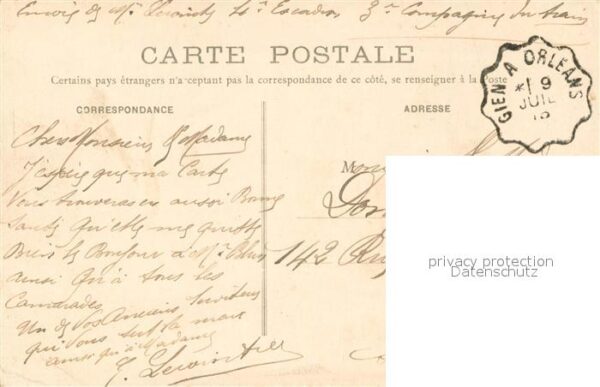 Envoi de Mr 4e Escadron 3e Compagnie du train
CARTE POSTALE
Certains pays étrangers n'acceptant pas la correspondance de ce côté, se renseigner à la Poste
GIEN A ORLÉANS
*1 9
JUIL
15
CORRESPONDANCE
ADRESSE
Cher Monsieur & Madame
J'espère que ma Carte
Vous trouveras en aussi Bonne
Santé Qu'elle me quitte
Bien le Bonjour à Mr
ainsi Qu'à tous les
Camarades
Un de Vos Anciens Serviteurs
qui Vous Serre la main
ainsi qu'à Madame
142 Ru
privacy protection
Datenschutz